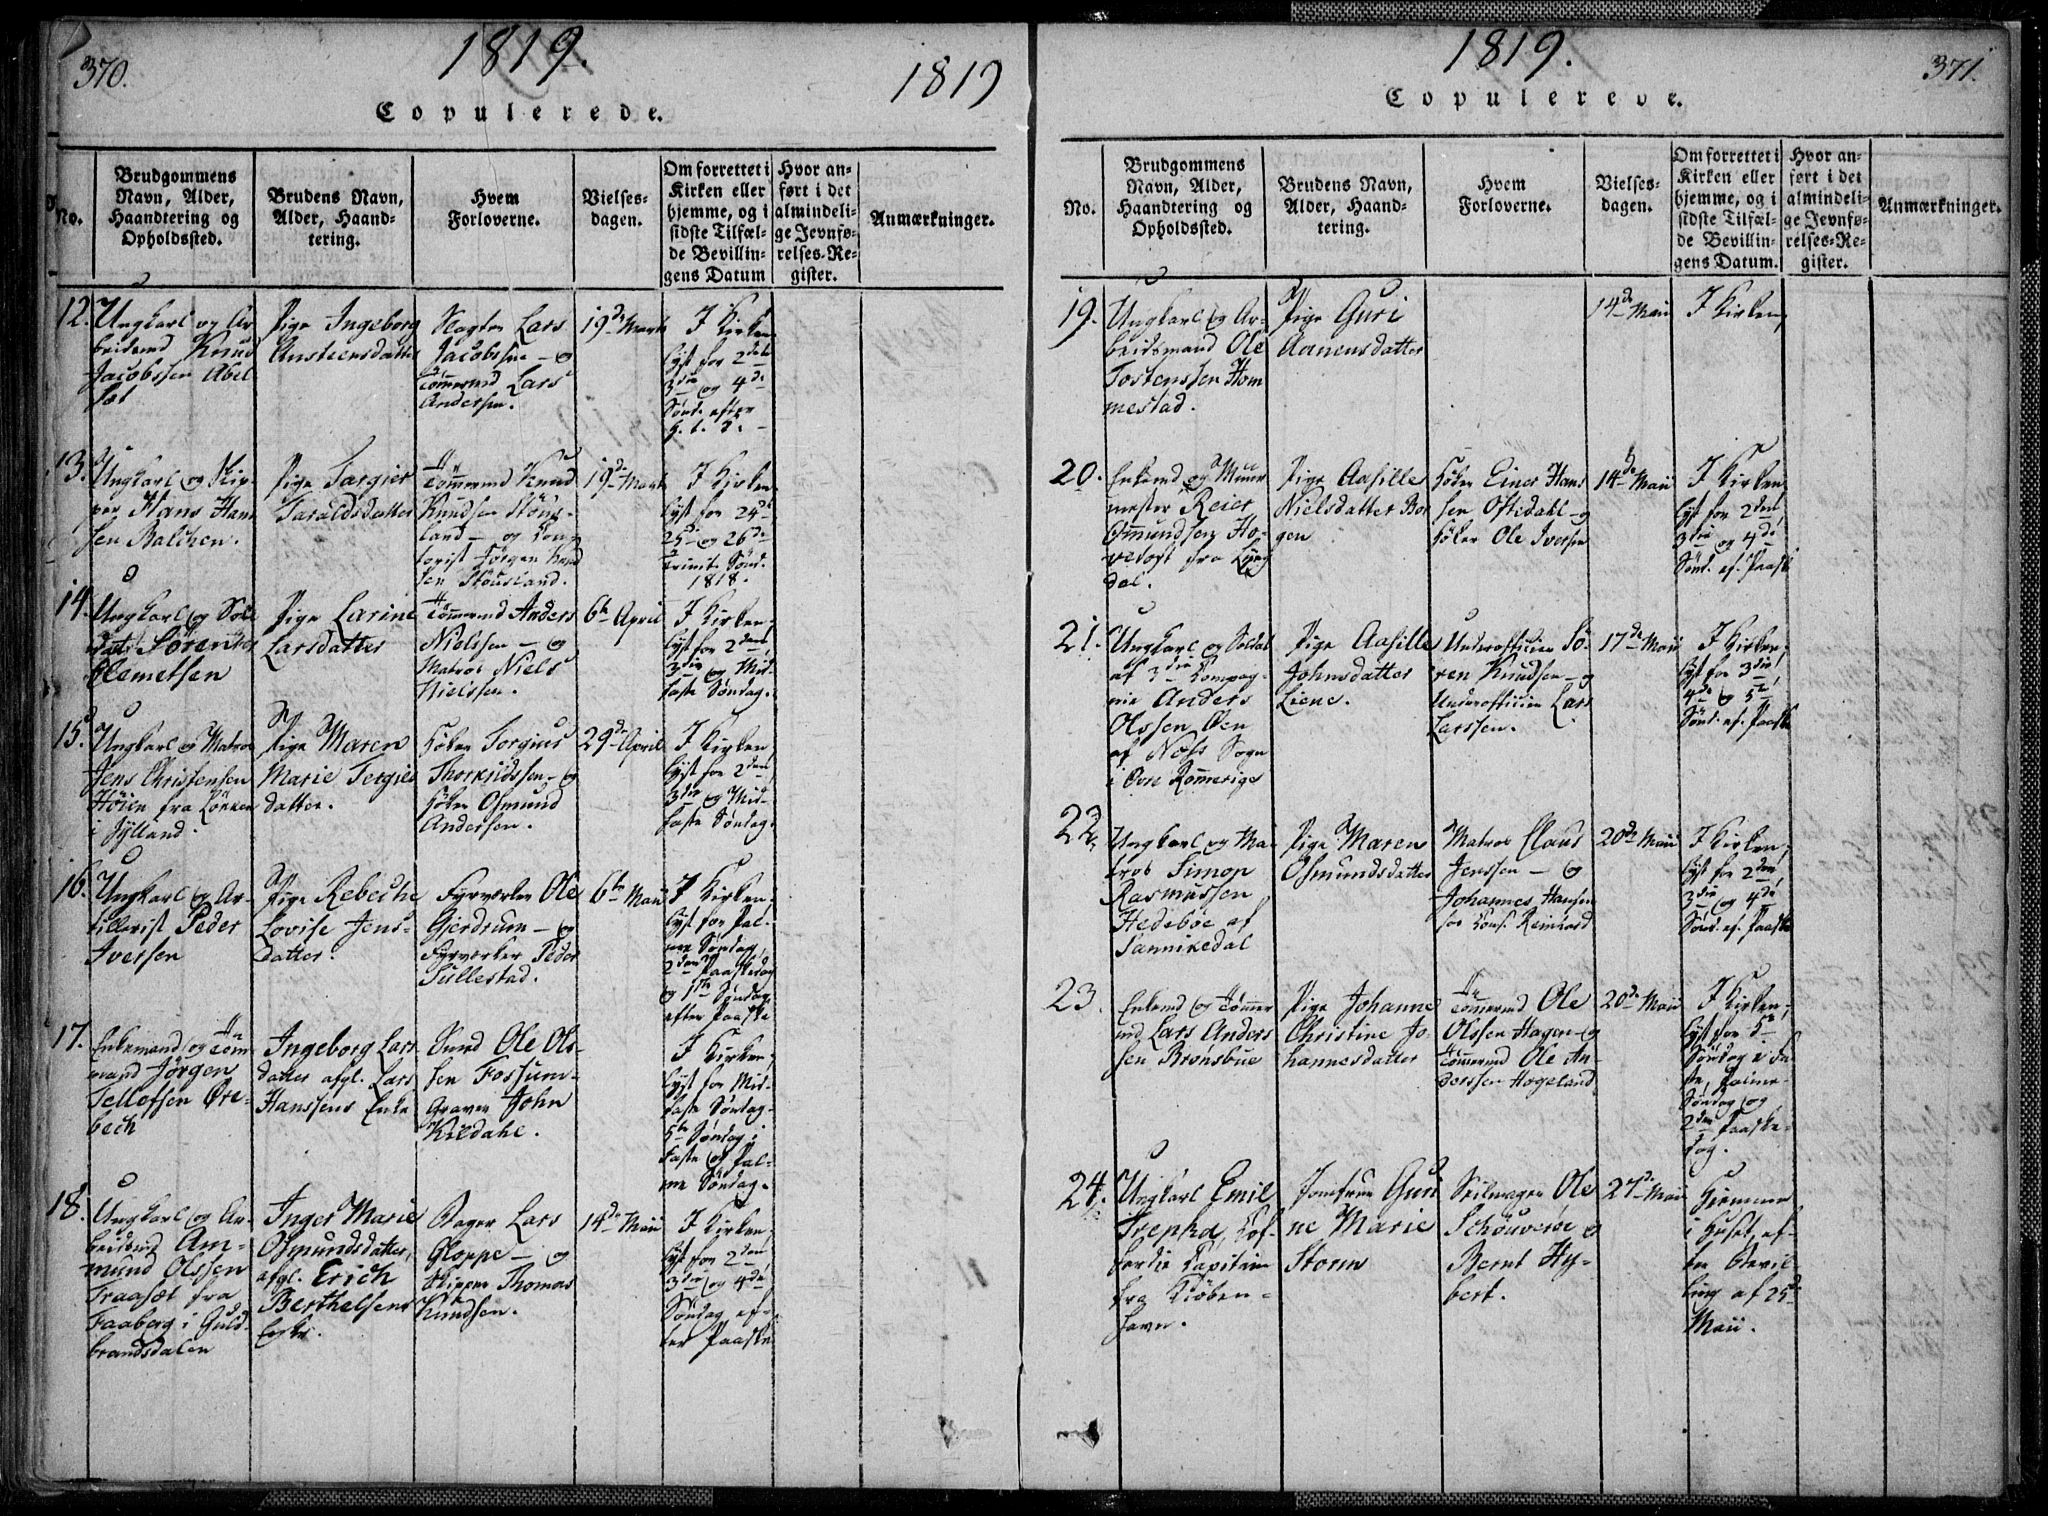 370.
1819.
1819
Copulerede.
No.
Brudgommens
Navn, Alder,
Haandtering og
Opholdssted.
Brudens Navn,
Alder, Haand-
tering.
Hvem
Forloverne.
Vielses-
dagen.
Om forrettet i
Kirken eller
hjemme, og i
sidste Tilfæl-
de Bevillin-
gens Datum
Hvor an-
ført i det
almindeli-
ge Jevnfø-
relses-Re-
gister.
Anmærkninger.
12.
Ungkarl og Ar-
beidsmd Knud
Jacobssen Abel-
sæt
Pige Ingeborg
Austeensdatter
Slagter Lars
Jacobssen - og
Tömmermd Lars
Andersen.
19de Marts
I Kirken,
lyst for 2den
3die og 4de
Sönd. efter
H. t. K.
13.
Ungkarl og Skip-
per Hans Han-
sen Balchen.
Pige Targier
Taraldsdatter
Tömmermd Knud
Knudsen Stöus-
land - og Con-
torist Jörgen Knud
sen Stöusland.
19de Marts
I Kirken,
lyst for 24de
25de og 26de
Trinit. Sönd.
1818.
14.
Ungkarl og Sol-
dat Sören
Clemetsen
Pige Larine
Larsdatter
Tömmermd Anders
Nielssen - og
Matros Niels
Nielssen.
6te April
I Kirken,
lyst for 2den
3die og Mid-
faste Söndag.
15.
Ungkarl og Matros
Jens Christensen
Höien fra Lökken
i Jylland.
Pige Maren
Marie Tergies
datter.
Höker Torgius
Thorkildssen - og
Höker Osmund
Andersen.
29de April
I Kirken,
lyst for 2den
3die og Mid-
faste Söndag.
16.
Ungkarl og Ar-
tillerist Peder
Iversen
Pige Rebeche
Lovise Jens-
datter.
Fyrværker Ole
Gjerdrum - og
Fyrværker Peder
Tullestad.
6te Maii
I Kirken,
lyst for Pal-
me Söndag,
2den Paaskedag
og 1ste Söndag
efter Paaske
17.
Enkemand og Töm-
mand Jörgen
Tellofsen Øre-
bech
Ingeborg Lars
datter afgl. Lars
Hanssens Enke
Smed Ole Ols-
sen Fossum-
Graver John
Kildahl.
I Kirken,
lyst for Mid-
faste Söndag-
5te Söndag i
Faste og Pal-
me Söndag.
18.
Ungkarl og Ar-
beidsmd Am-
mund Olssen
Traasæt fra
Faaberg i Guld-
brandsdalen
Inger Marie
Osmundsdatter,
afgl. Erich
Berthelsens
Enke.
Bager Lars
Gloppe - og
Skipper Thomas
Knudsen.
14de Maii
I Kirken,
lyst for 2den
3die og 4de
Söndag ef-
ter Paaske
371.
1819.
Copulerede.
No.
Brudgommens
Navn, Alder,
Haandtering og
Opholdssted.
Brudens Navn,
Alder, Haand-
tering.
Hvem
Forloverne.
Vielses-
dagen.
Om forrettet i
Kirken eller
hjemme, og i
sidste Tilfæl-
de Bevillin-
gens Datum.
Hvor an-
ført i det
almindeli-
ge Jevnfø-
relses-Re-
gister.
Anmærkninger.
19.
Ungkarl og Ar-
beidsmand Ole
Tostenssen Hom
mestad.
Pige Guri
Aanensdatter
14de Maii
I Kirken,
20.
Enkemd og Muur
mester Reier
Ommundsen Ho-
vetoft fra Lyng
dal.
Pige Aasille
Nielsdatter Bor
gen
Höker Einer Hans
sen Oftedahl - og
Höker Ole Iversen
14de Maii
I Kirken,
lyst for 2den
3die og 4de
Sönd. ef. Paaske
21.
Ungkarl og Soldat
af 3die Kompag-
nie Anders
Olssen Øen
af Næss Sogn
i Øvre Rommerige
Pige Aasille
Johnsdatter
Liene.
Underofficier Sö-
ren Knudsen - og
Underofficier Lars
Larssen.
17de Maii
I Kirken,
lyst for 3die
4de og 5te
Sönd. ef. Paaske
22.
Ungkarl og Ma-
tros Simon
Rasmussen
Hedeböe af
Sannikedal
Pige Maren
Osmundsdatter
Matros Claus
Jenssen - og
Johannes Hansen
hos Cons. Reinhard
20de Maii
I Kirken,
lyst for 2den
3die og 4de
Sönd. ef. Paaske
23.
Enkemd og Tömmer
md Lars Anders
sen Brönsbue
Pige Johanne
Christine Jo-
hannesdatter
Tömmermd Ole
Olssen Hagen - og
Tömmermd Ole An-
derssen Hogeland
20de Maii
I Kirken,
lyst for 5te
Söndag i Fa-
ste, Palme-
Söndag og
2den Paaske-
dag.
24.
Ungkarl Emil
Trepka, Kof-
fardie Kapitain
fra Kiöben-
havn.
Jomfrue Guri
ne Marie
Storm
Seilmager Ole
Schöuveröe og
Bernt Hy-
bert.
27de Maii
Hiemme
i Huset, ef-
ter Bevil-
ling af 25de
Maii.